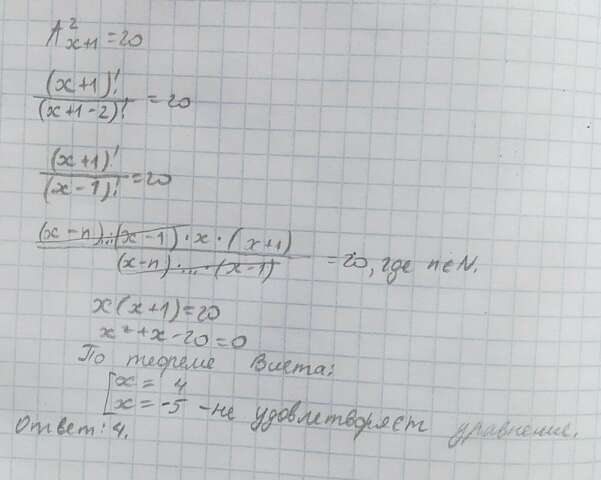 A²ₓ₊₁ = 20
(x+1)! / (x+1-2)! = 20
(x+1)! / (x-1)! = 20
(x-n)·...·(x-1)·x·(x+1) / (x-n)·...·(x-1) = 20, где n∈N.
x(x+1)=20
x²+x-20=0
По теореме Виета:
[x = 4
x = -5 - не удовлетворяет уравнение.
Ответ: 4.